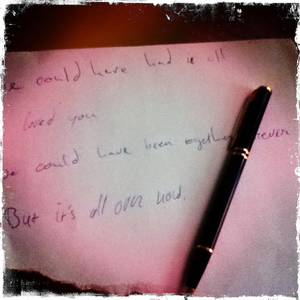 we could have had it all
loved you
we could have been together forever
But it's all over now.